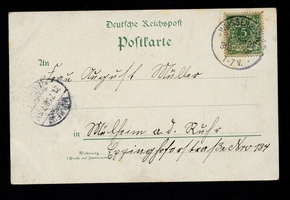 Deutsche Reichspost
Postkarte
An
Frau August Müller
in
Mülheim a. d. Ruhr
Wohnung
Eppinghoferstraße Nro 134
5
1-2 N.